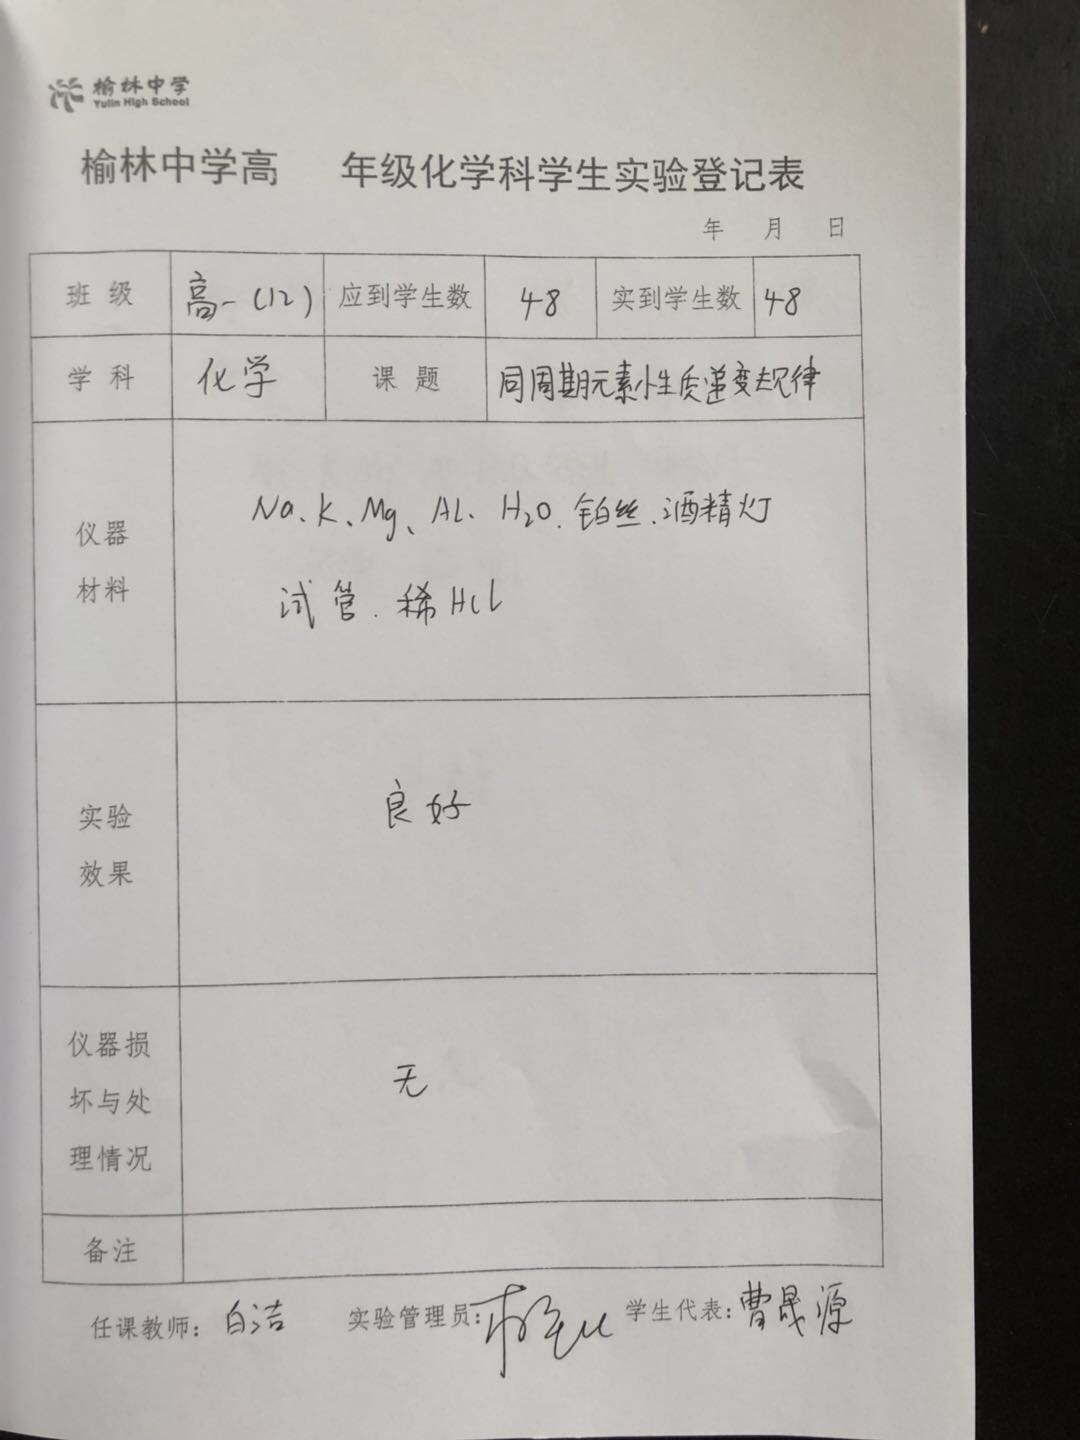 榆林中学
Yulin High School
榆林中学高 年级化学科学生实验登记表
年 月 日
班级 高一(12) 应到学生数 48 实到学生数 48
学科 化学 课题 同周期元素性质递变规律
仪器
材料
Na、K、Mg、Al、H₂O、铂丝、酒精灯
试管、稀HCl
实验
效果
良好
仪器损
坏与处
理情况
无
备注
任课教师：白洁 实验管理员： 学生代表：曹晟源